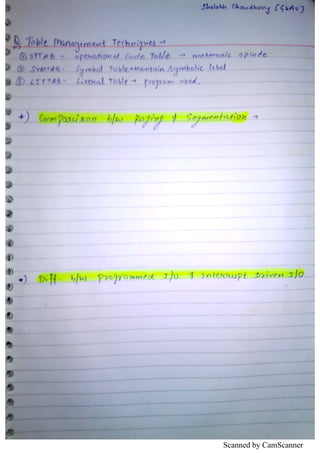 Shalabh Chaudhary [GLAU]
Q. Table Management Techniques →
① OPTAB - operational Code Table → mnemonic opcode
② SYMTAB - Symbol Table → Maintain Symbolic label
③ LITTAB - Literal Table → program used.
*) Comparison b/w Paging & Segmentation →
*) Diff. b/w Programmed I/O & Interrupt Driven I/O
Scanned by CamScanner